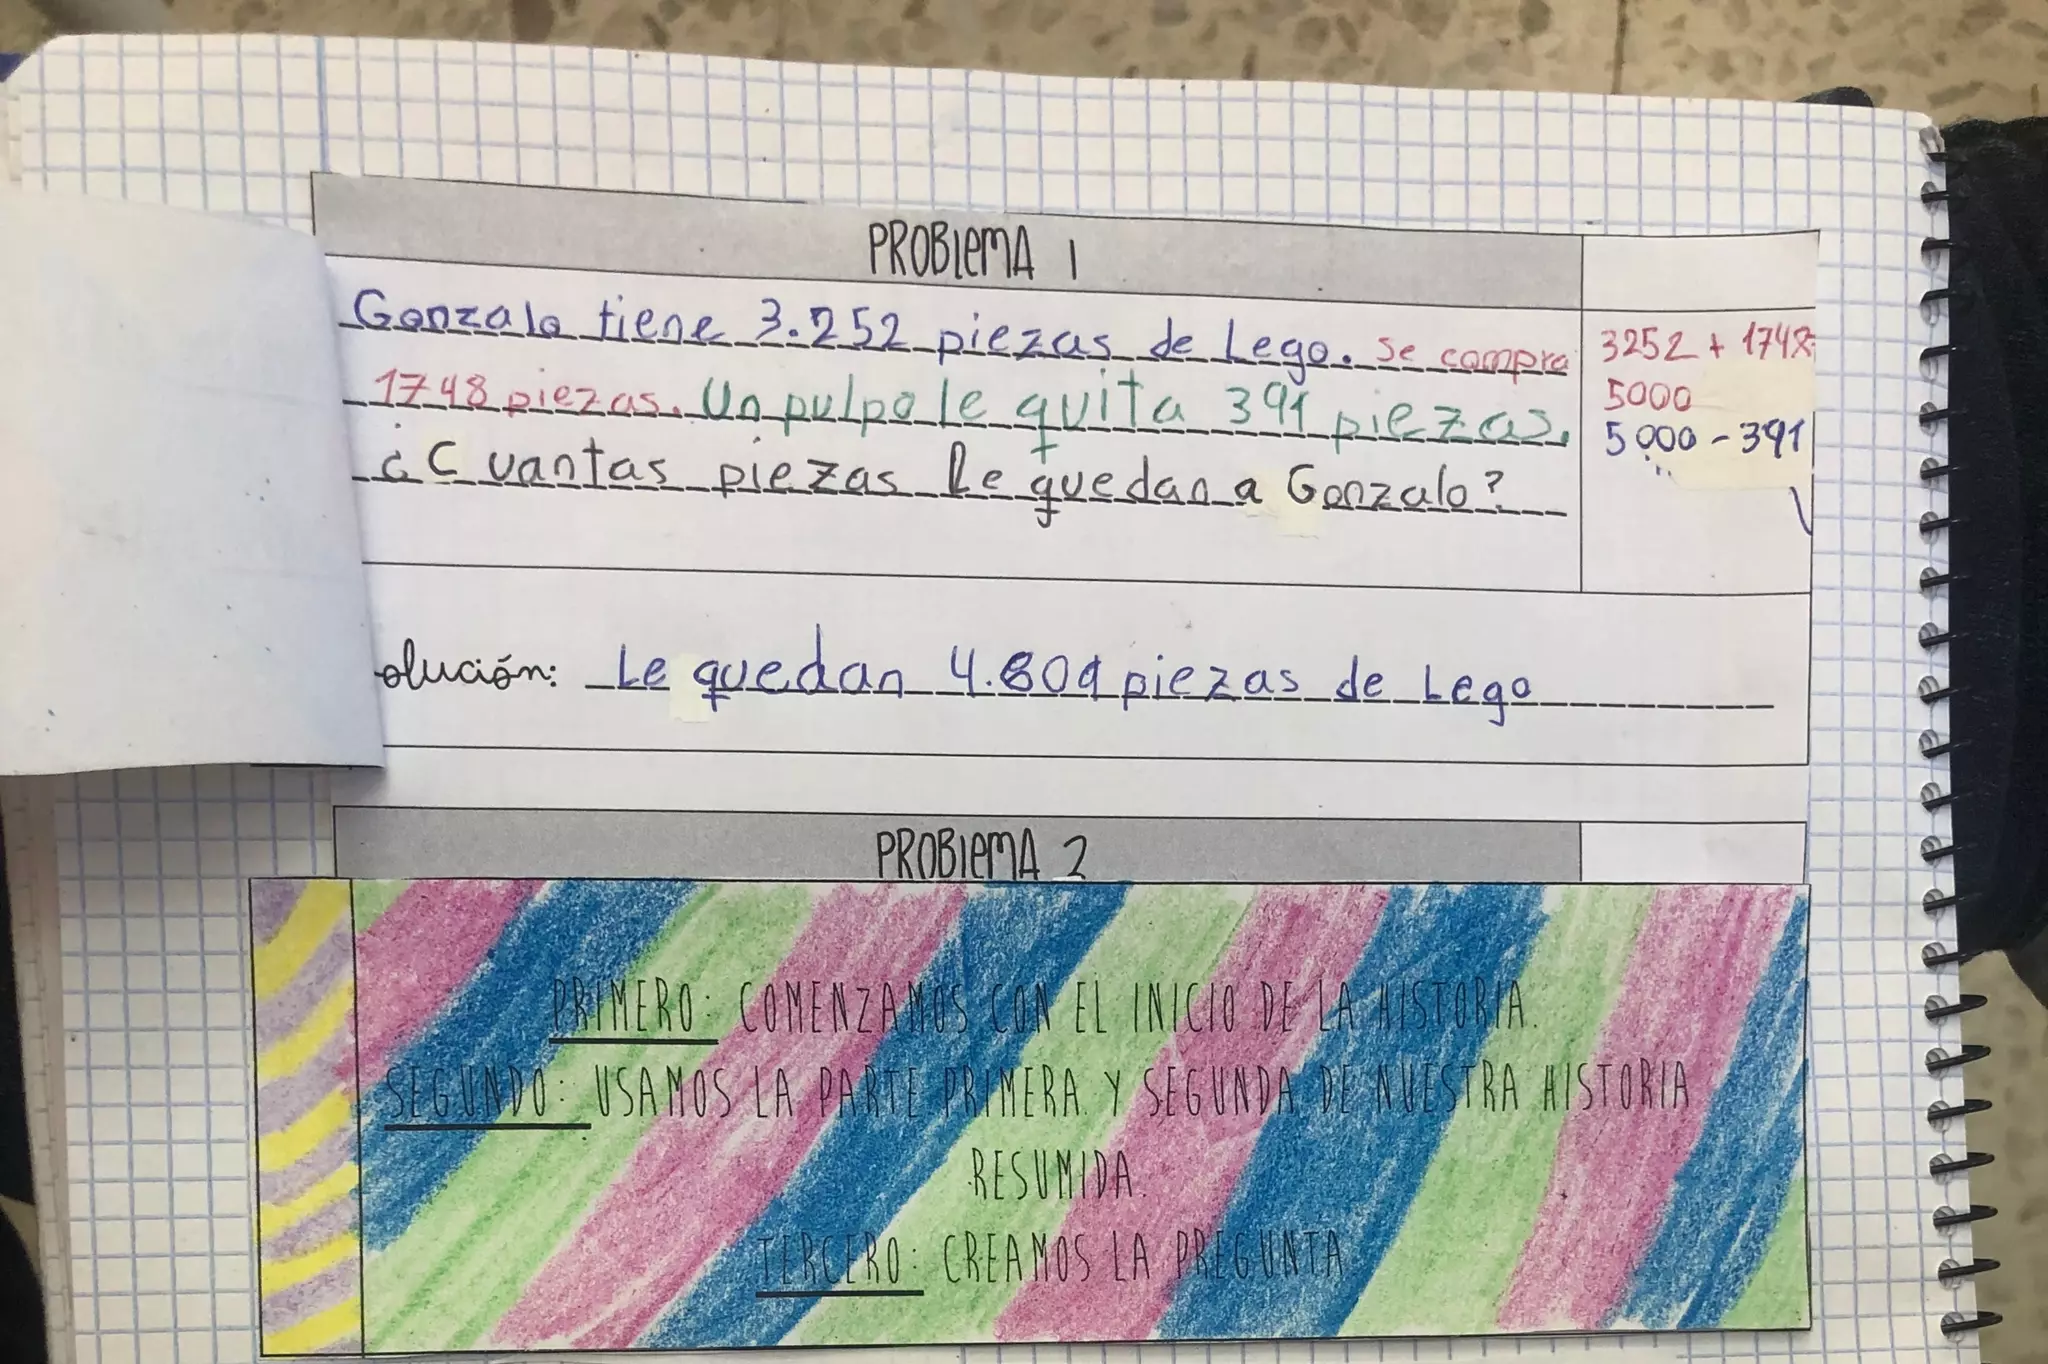 PROBLEMA 1
Gonzalo tiene 3.252 piezas de Lego. Se compra
1748 piezas. Un pulpo le quita 391 piezas.
¿Cuantas piezas le quedan a Gonzalo?
3252 + 1748
5000
5000 - 391
olución: Le quedan 4.609 piezas de Lego
PROBLEMA 2
PRIMERO: COMENZAMOS CON EL INICIO DE LA HISTORIA.
SEGUNDO: USAMOS LA PARTE PRIMERA Y SEGUNDA DE NUESTRA HISTORIA
RESUMIDA.
TERCERO: CREAMOS LA PREGUNTA